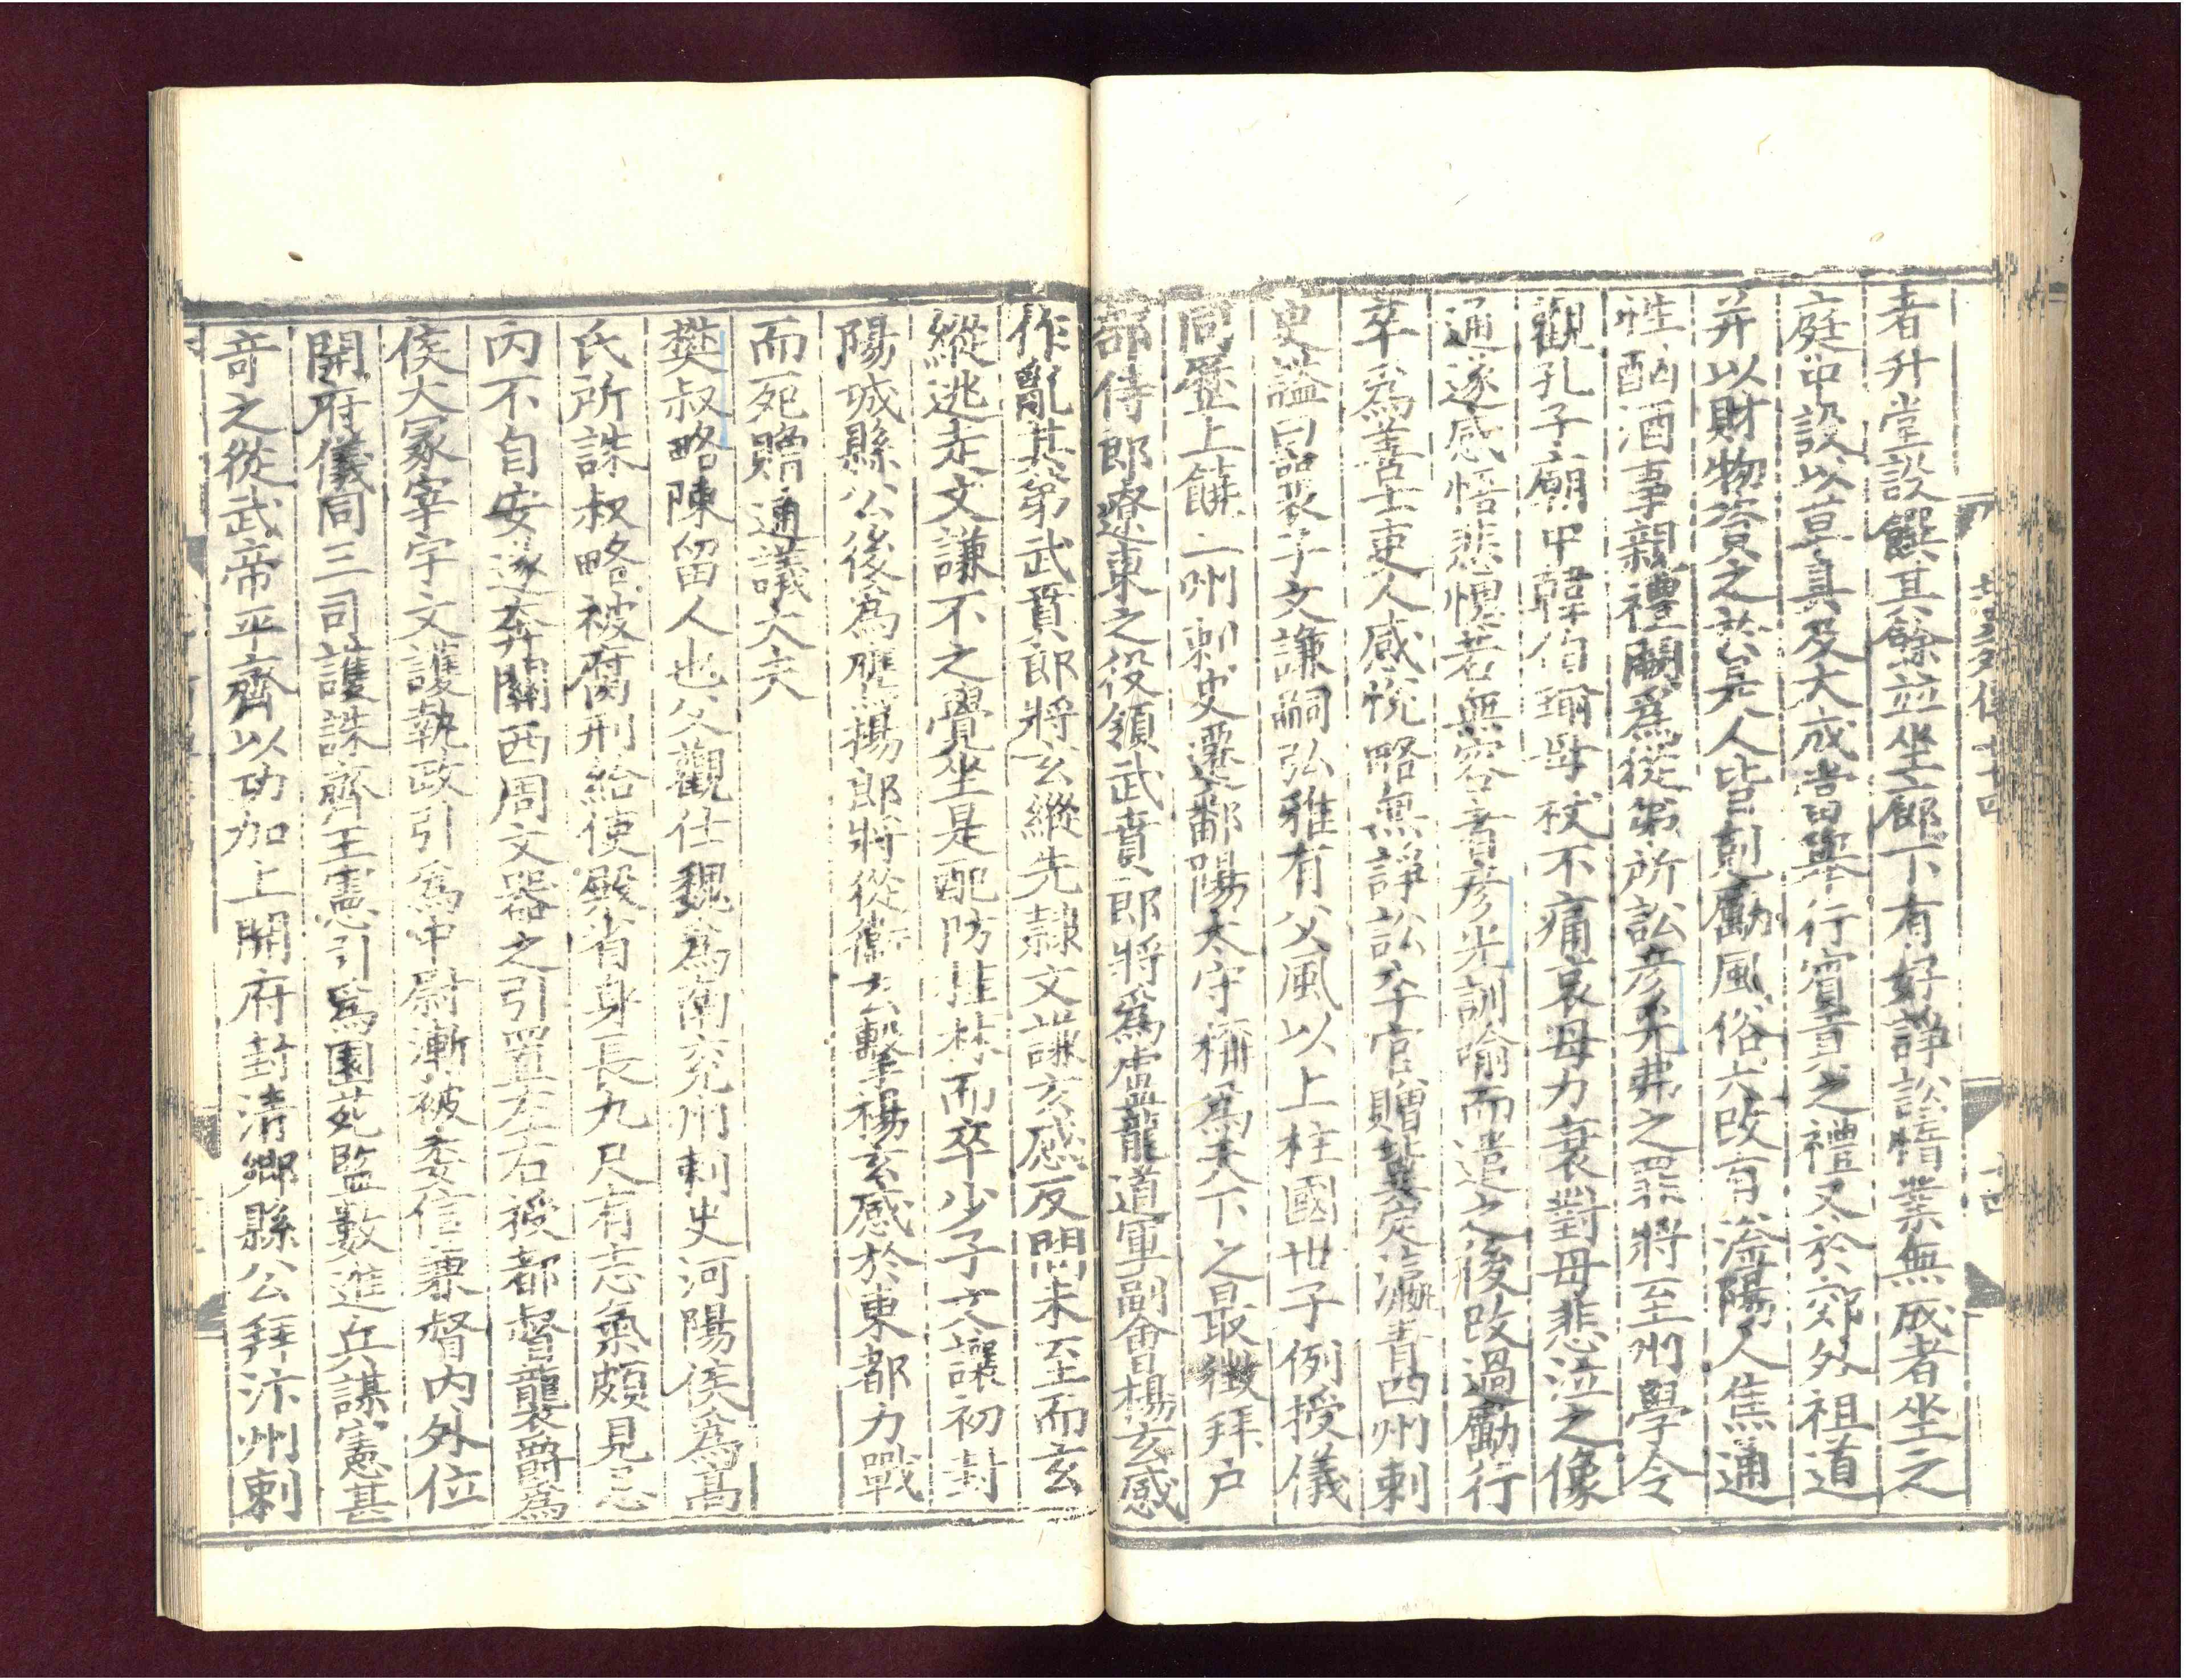 者升堂設饌其餘並坐廊下有好諍訟惰業無成者坐之
庭中設以草具及大成當舉行賓貢之禮又於郊外祖道
并以財物資之於是人皆剋勵風俗大改有滏陽人焦通
性酗酒事親禮闕爲從弟所訟彦光弗之罪將至州學令
觀孔子廟中韓伯瑜母杖不痛哀母力衰對母悲泣之像
通遂感悟悲愧若無容者彦光訓喻而遣之後改過勵行
卒爲善士吏人感悅略無諍訟卒官贈冀定瀛青四州刺
史諡曰襄子文謙嗣弘雅有父風以上柱國世子例授儀
同歷上饒二州刺史遷鄱陽太守稱爲天下之最徵拜户
部侍郎遼東之役領武賁郎將爲盧龍道軍副會楊玄感
作亂其弟武賁郎將玄縱先隸文謙玄感反問未至而玄
縱逃走文謙不之覺坐是配防桂林而卒少子文讓初封
陽城縣公後爲鷹揚郎將從衞玄擊楊玄感於東都力戰
而死贈通議大夫
樊叔略陳留人也父觀仕魏爲南兖州刺史河陽侯爲高
氏所誅叔略被腐刑給使殿省身長九尺有志氣頗見忌
内不自安遂奔關西周文器之引置左右授都督襲爵爲
侯大冢宰宇文護執政引爲中尉漸被委信兼督内外位
開府儀同三司護誅齊王憲引爲園苑監數進兵謀憲甚
奇之從武帝平齊以功加上開府封清鄉縣公拜汴州刺